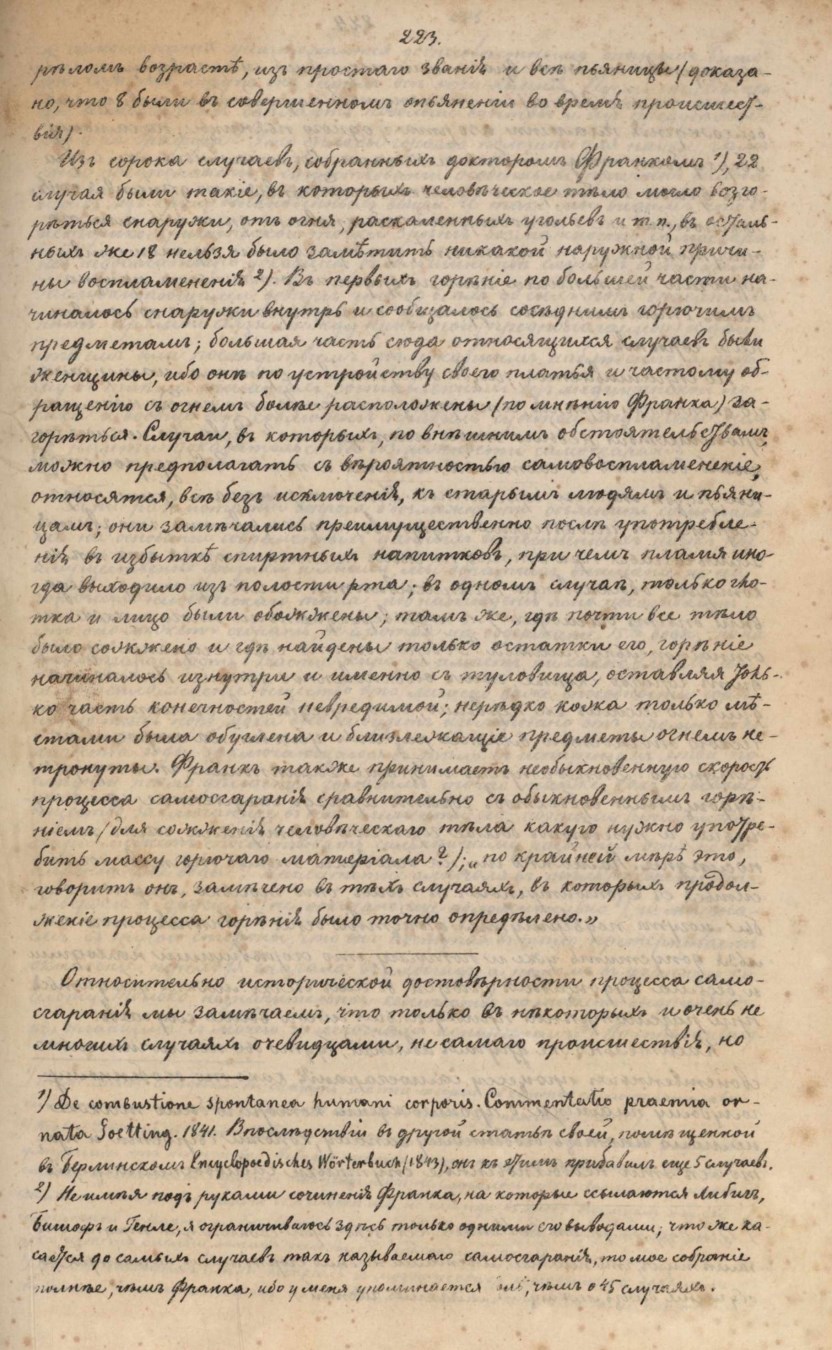 223.
рѣломъ возрастѣ, изъ простаго званія и всѣ пьяницы (доказа-
но, что 8 были въ совершенномъ опьяненіи во время происшест-
вія).
Изъ сорока случаевъ, собранныхъ докторомъ Франкомъ ¹), 22
случая были такіе, въ которыхъ человѣческое тѣло могло возго-
рѣться снаружи, отъ огня, раскаленныхъ угольевъ и т. п., въ осталь-
ныхъ же 18 нельзя было замѣтить никакой наружной причи-
ны воспламененія ²). Въ первыхъ горѣніе по большей части на-
чиналось снаружи внутрь и сообщалось сосѣднимъ горючимъ
предметамъ; большая часть сюда относящихся случаевъ были
женщины, ибо онѣ по устройству своего платья и частому об-
ращенію съ огнемъ болѣе расположены (по мнѣнію Франка) за-
горѣться. Случаи, въ которыхъ, по внѣшнимъ обстоятельствамъ,
можно предполагать съ вѣроятностью самовоспламененіе,
относятся, всѣ безъ исключенія, къ старымъ людямъ и пьяни-
цамъ; они замѣчались преимущественно послѣ употребле-
нія въ избыткѣ спиртныхъ напитковъ, при чемъ пламя ино-
гда выходило изъ полости рта; въ одномъ случаѣ, только гло-
тка и лицо были обожжены; тамъ же, гдѣ почти все тѣло
было сожжено и гдѣ найдены только остатки его, горѣніе
начиналось изнутри и именно съ туловища, оставляя толь-
ко часть конечностей невредимой; нерѣдко кожа только мѣ-
стами была обуглена и близлежащіе предметы огнемъ не-
тронуты. Франкъ также принимаетъ необыкновенную скорость
процесса самосгаранія сравнительно съ обыкновеннымъ горѣ-
ніемъ (для сожженія человѣческаго тѣла какую нужно употре-
бить массу горючаго матеріала?); „по крайней мѣрѣ это,
говоритъ онъ, замѣчено въ тѣхъ случаяхъ, въ которыхъ продол-
женіе процесса горѣнія было точно опредѣлено.„
Относительно исторической достовѣрности процесса само-
сгаранія мы замѣчаемъ, что только въ нѣкоторыхъ и очень не
многихъ случаяхъ очевидцами, не самаго происшествія, но
¹) De combustione spontanea humani corporis. Commentatio praemia or-
nata Goetting. 1841. Впослѣдствіи въ другой статьѣ своей, помѣщенной
въ Берлинскомъ Encyclopoedisches Wörterbuch (1843), онъ къ этимъ прибавилъ еще 5 случаевъ.
²) Не имѣя подъ руками сочиненія Франка, на которые ссылаются Либихъ,
Бишофъ и Генле, я ограничиваюсь здѣсь только одними его выводами; что же ка-
сается до самыхъ случаевъ такъ называемаго самосгаранія, то мое собраніе
полнѣе, чѣмъ Франка, ибо у меня упоминается чѣмъ о 45 случаяхъ.